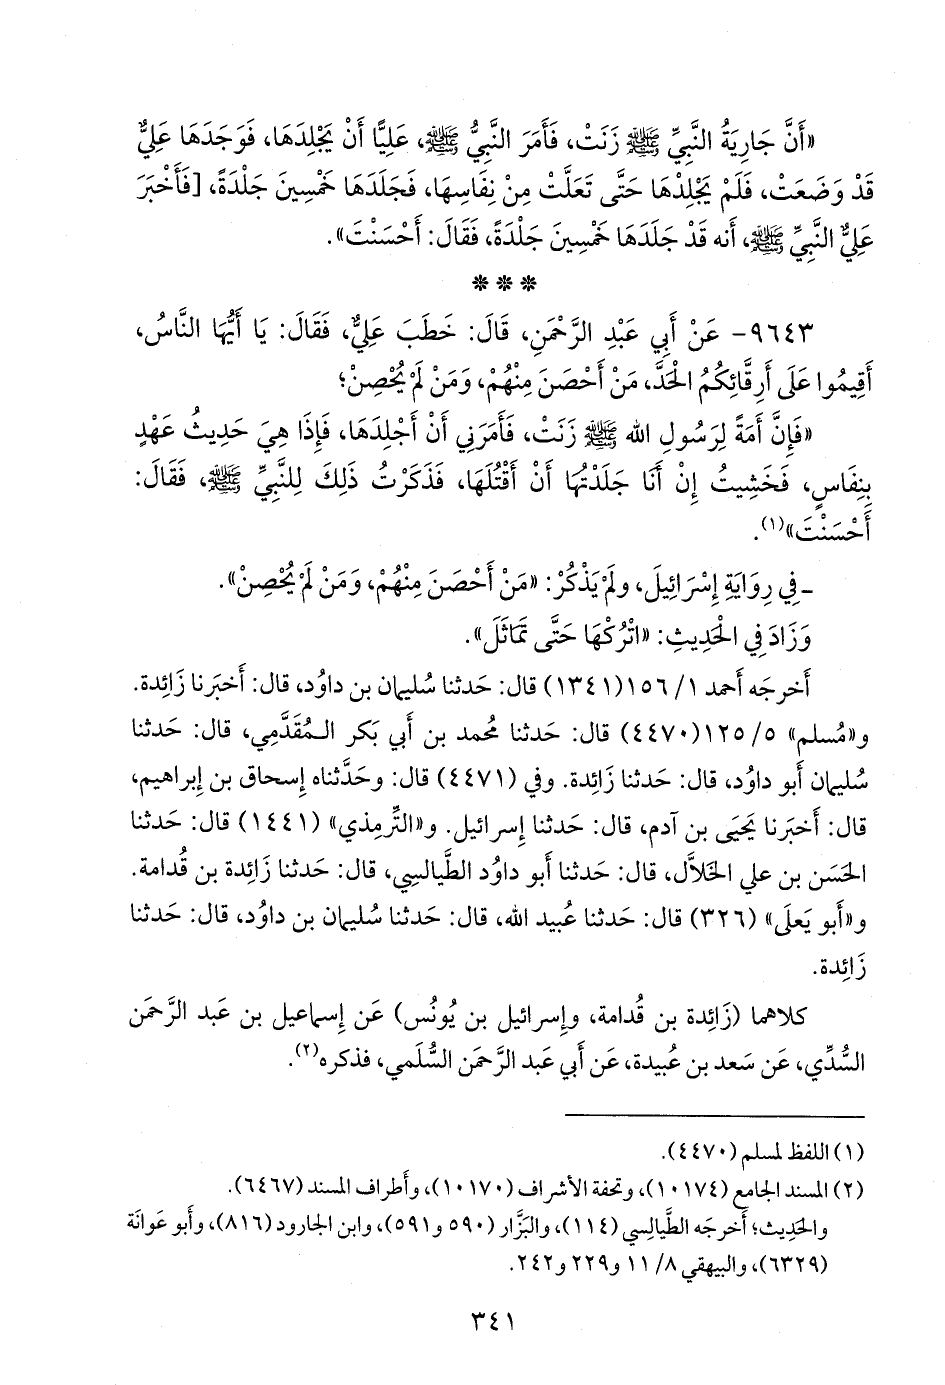 «أَنَّ جَارِيَةُ النَّبِيِّ ﷺ زَنَتْ، فَأَمَرَ النَّبِيُّ ﷺ، عَلِيًّا أَنْ يَجْلِدَهَا، فَوَجَدَهَا عَلِيٌّ
قَدْ وَضَعَتْ، فَلَمْ يَجْلِدْهَا حَتَّى تَعَلَّتْ مِنْ نِفَاسِهَا، فَجَلَدَهَا خَمْسِينَ جَلْدَةً، [فَأَخْبَرَ
عَلِيٌّ النَّبِيِّ ﷺ، أنه قَدْ جَلَدَهَا خَمْسِينَ جَلْدَةً، فَقَالَ: أَحْسَنْتَ».
***
٩٦٤٣- عَنْ أَبِي عَبْدِ الرَّحْمَنِ، قَالَ: خَطَبَ عَلِيٌّ، فَقَالَ: يَا أَيُّهَا النَّاسُ،
أَقِيمُوا عَلَى أَرِقَّائِكُمُ الْحَدَّ، مَنْ أَحْصَنَ مِنْهُمْ، وَمَنْ لَمْ يُحْصِنْ؛
«فَإِنَّ أَمَةً لِرَسُولِ الله ﷺ زَنَتْ، فَأَمَرَنِي أَنْ أَجْلِدَهَا، فَإِذَا هِيَ حَدِيثُ عَهْدٍ
بِنِفَاسٍ، فَخَشِيتُ إِنْ أَنَا جَلَدْتُهَا أَنْ أَقْتُلَهَا، فَذَكَرْتُ ذَلِكَ لِلنَّبِيِّ ﷺ، فَقَالَ:
أَحْسَنْتَ»(١).
ـ فِي رِوَايَةِ إِسْرَائِيلَ، ولَمْ يَذْكُرْ: «مَنْ أَحْصَنَ مِنْهُمْ، وَمَنْ لَمْ يُحْصِنْ».
وَزَادَ فِي الْحَدِيثِ: «اتْرُكْهَا حَتَّى تَمَاثَلَ».
أَخرجَه أَحمد ١/ ١٥٦(١٣٤١) قال: حَدثنا سُليمان بن داوُد، قال: أَخبَرنا زَائِدة.
و«مُسلم» ٥/ ١٢٥(٤٤٧٠) قال: حَدثنا مُحمد بن أَبي بَكر المُقدَّمي، قال: حَدثنا
سُليمان أَبو داوُد، قال: حَدثنا زَائِدة. وفي (٤٤٧١) قال: وحَدَّثناه إِسحاق بن إِبراهيم،
قال: أَخبَرنا يَحيَى بن آدم، قال: حَدثنا إِسرائيل. و«التِّرمِذي» (١٤٤١) قال: حَدثنا
الحَسَن بن علي الخَلاَّل، قال: حَدثنا أَبو داوُد الطَّيالسِي، قال: حَدثنا زَائِدة بن قُدامة.
و«أَبو يَعلَى» (٣٢٦) قال: حَدثنا عُبيد الله، قال: حَدثنا سُليمان بن داوُد، قال: حَدثنا
زَائِدة.
كلاهما (زَائِدة بن قُدامة، وإِسرائيل بن يُونُس) عَن إِسماعيل بن عَبد الرَّحمَن
السُّدِّي، عَن سَعد بن عُبيدة، عَن أَبي عَبد الرَّحمَن السُّلَمي، فذكره(٢).
(١) اللفظ لمسلم (٤٤٧٠).
(٢) المسند الجامع (١٠١٧٤)، وتحفة الأشراف (١٠١٧٠)، وأطراف المسند (٦٤٦٧).
والحديث؛ أخرجَه الطَّيالِسي (١١٤)، والبَزَّار (٥٩٠ و٥٩١)، وابن الجارود (٨١٦)، وأبو عَوانَة
(٦٣٢٩)، والبيهقي ٨/ ١١ و٢٢٩ و٢٤٢.
٣٤١